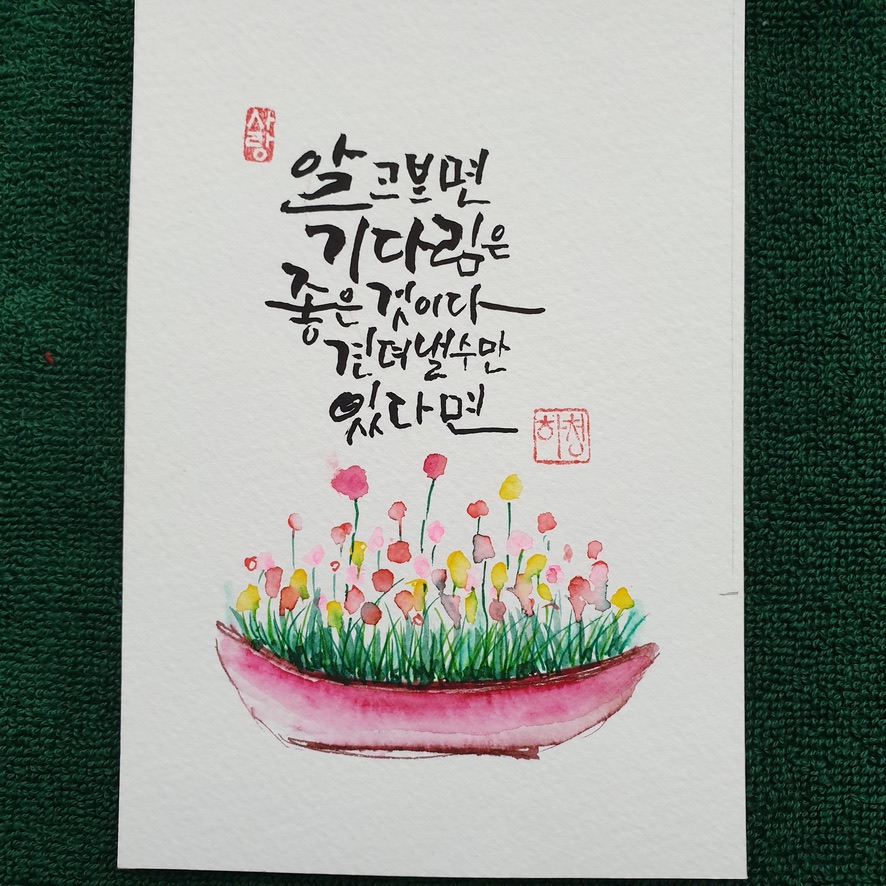 사랑
알고보면
기다림은
좋은 것이다
견뎌낼수만
있다면